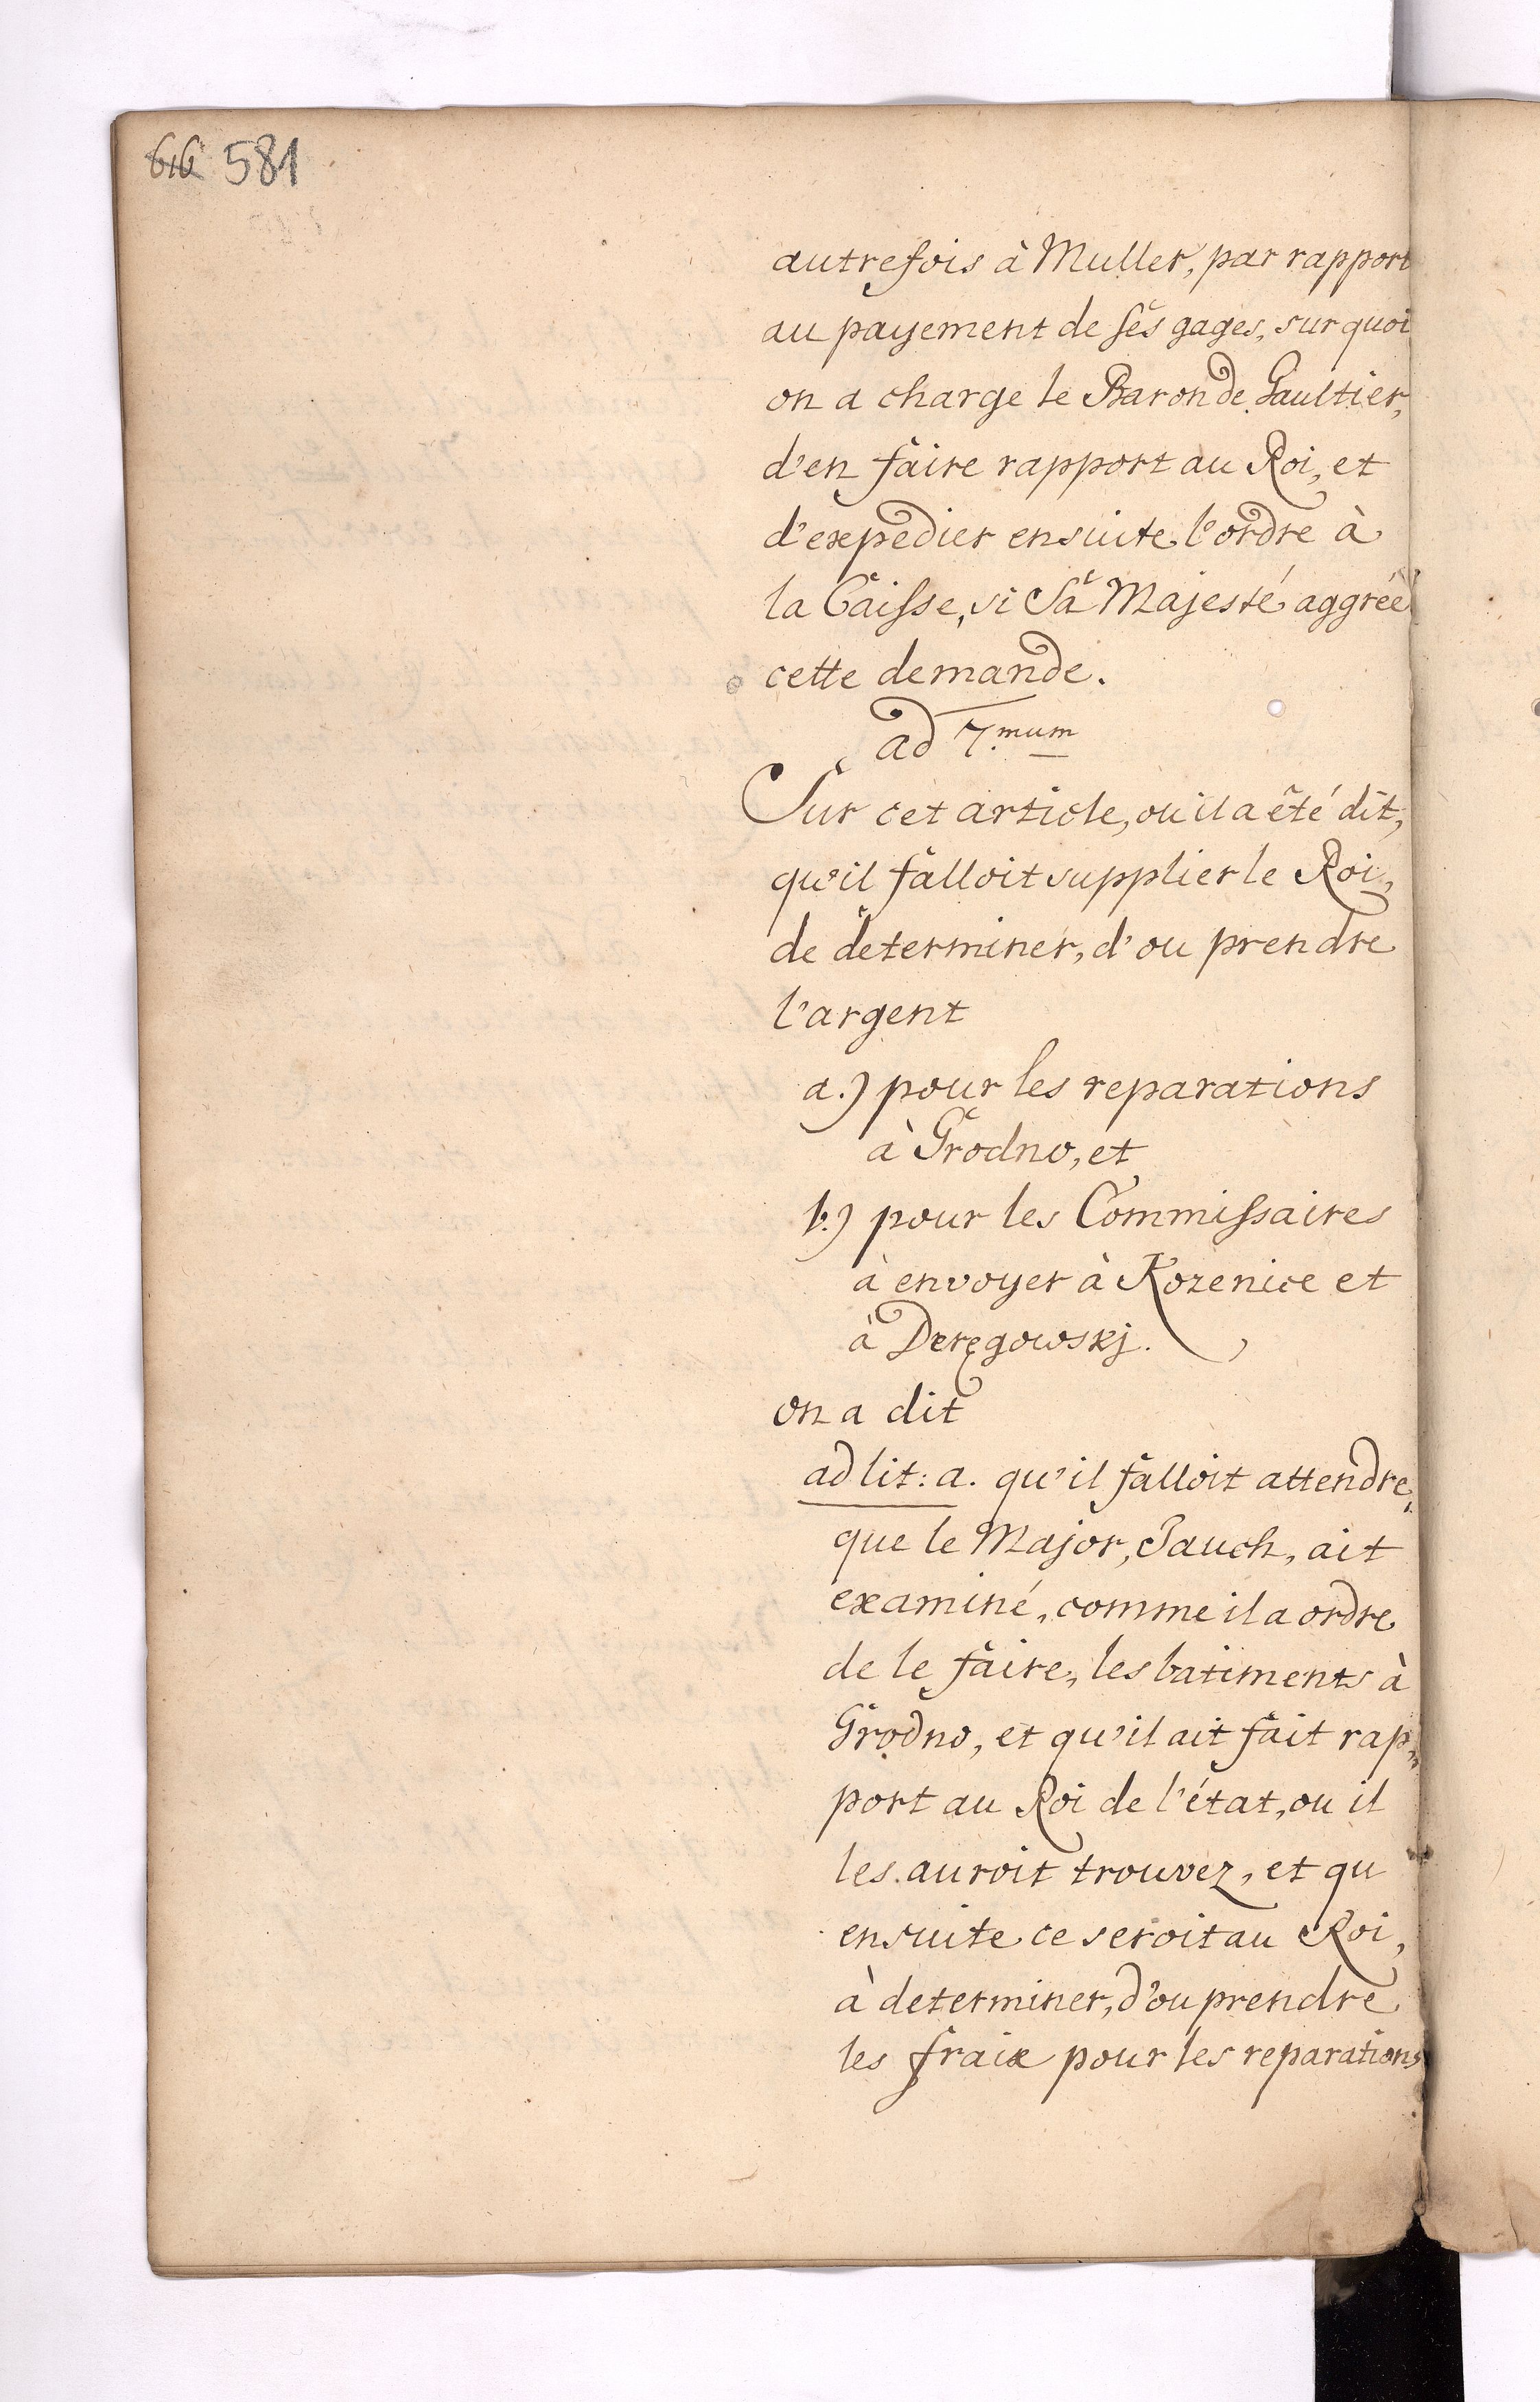 616 581
autrefois à Muller, par rapport
au payement de ses gages, sur quoi
on a charge le Baron de Gaultier,
d'en faire rapport au Roi, et
d'expedier ensuite l'ordre à
la Caisse, si Sa Majesté aggrée
cette demande.
ad 7.mum
Sur cet article, ou il a été dit,
qu'il falloit supplier le Roi,
de determiner, d'ou prendre
l'argent
a.) pour les reparations
à Grodno, et
b.) pour les Commissaires
à envoyer à Kozenice et
à Deręgowskj.
on a dit
ad lit: a. qu'il falloit attendre,
que le Major, Jauch, ait
examiné, comme il a ordre
de le faire, les batiments à
Grodno, et qu'il ait fait rap„
port au Roi de l'état, ou il
les auroit trouvez, et qu
ensuite ce seroit au Roi,
à determiner, d'ou prendre
les fraix pour les reparations